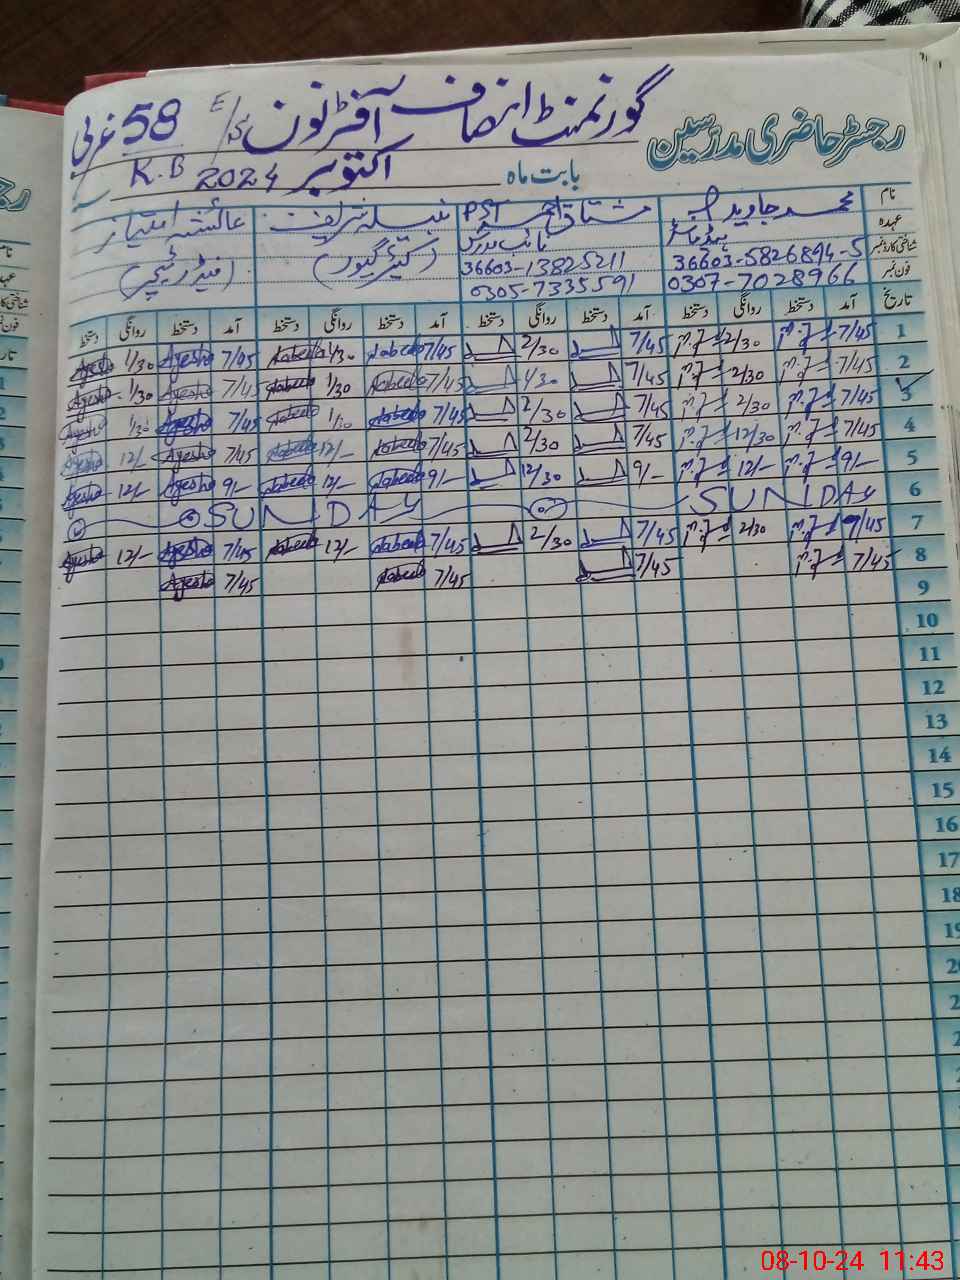 رجسٹر حاضری مدرسین
گورنمنٹ انصاف آفٹرنون E/S 58 غربی
بابت ماہ اکتوبر 2024 K.B
نام محمد جاوید مشتاق احمد PST نبیلہ شریف عائشہ امتیاز
عہدہ ہیڈ ماسٹر نائب مدرس (کیئر گیور) (فیڈر ٹیچر)
شناختی کارڈ نمبر 36603-5826894-5 36603-13825211
فون نمبر 0307-7028966 0305-7335591
تاریخ آمد دستخط روانگی دستخط آمد دستخط روانگی دستخط آمد دستخط روانگی دستخط آمد دستخط روانگی دستخط
1 7/45 2/30 7/45 2/30 7/45 Nabeela 1/30 Nabeela 7/45 Ayesha 1/30 Ayesha
2 7/45 2/30 7/45 1/30 7/45 Nabeela 1/30 Nabeela 7/45 Ayesha 1/30 Ayesha
3 7/45 2/30 7/45 2/30 7/45 Nabeela 1/30 Nabeela 7/45 Ayesha 1/30 Ayesha
4 7/45 12/30 7/45 2/30 7/45 Nabeela 12/- Nabeela 7/45 Ayesha 12/- Ayesha
5 9/- 12/- 9/- 12/30 9/- Nabeela 12/- Nabeela 9/- Ayesha 12/- Ayesha
6 SUNDAY SUNDAY
7 7/45 2/30 7/45 2/30 7/45 Nabeela 12/- Nabeela 7/45 Ayesha 12/- Ayesha
8 7/45 7/45 7/45 Nabeela 7/45 Ayesha
9
10
11
12
13
14
15
16
17
18
08-10-24 11:43